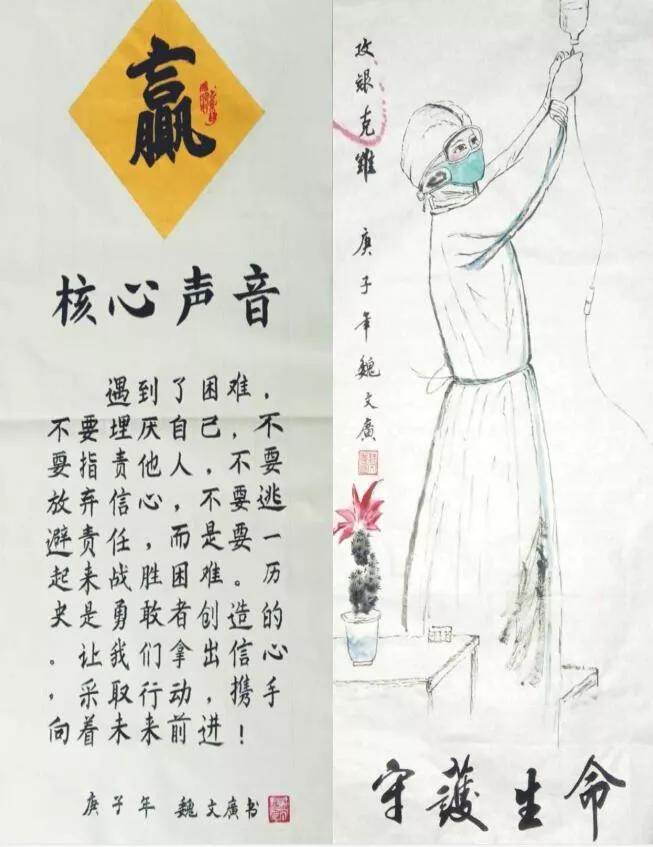 赢
核心声音
遇到了困难，
不要埋厌自己，不
要指责他人，不要
放弃信心，不要逃
避责任，而是要一
起来战胜困难。历
史是勇敢者创造的
。让我们拿出信心
，采取行动，携手
向着未来前进！
庚子年 魏文廣书
攻艱克難
庚子年魏文廣
守護生命